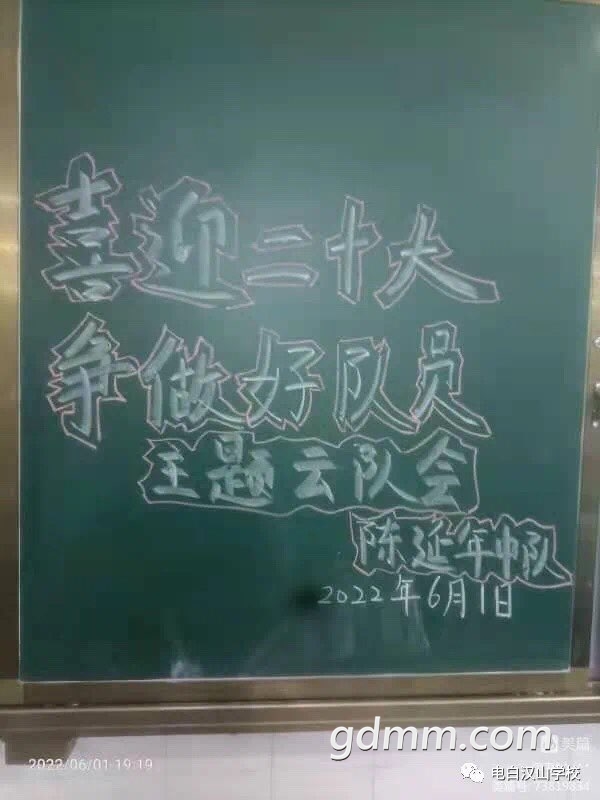 喜迎二十大
争做好队员
主题云队会
陈延年中队
2022年6月1日
gdmm.com
美篇
2022/06/01 19:19
电白汉山学校
美篇号: 73819834